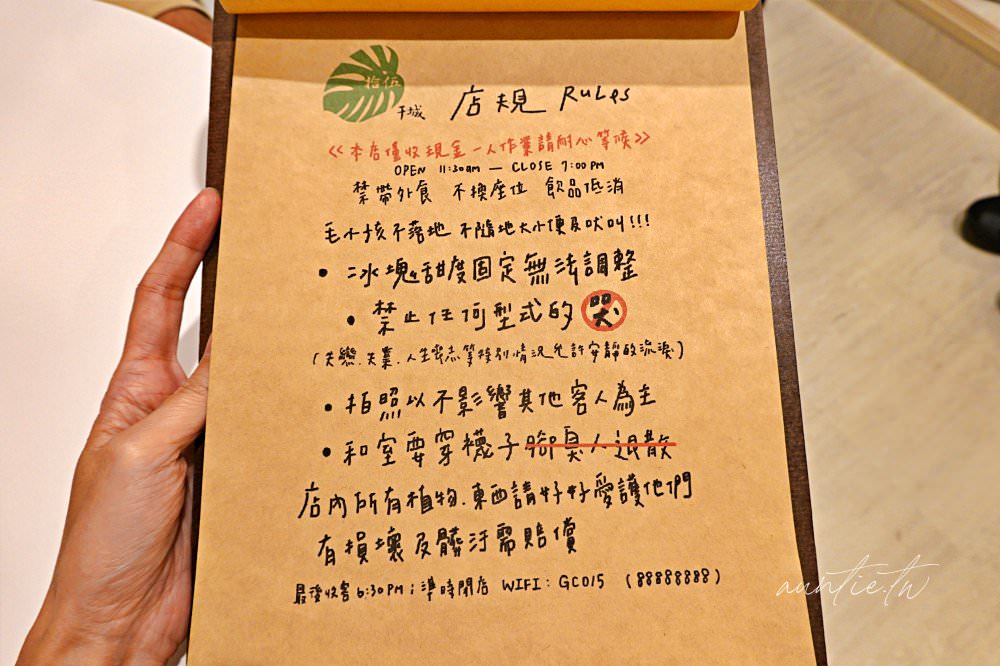 拾伍
干城 店規 RULes
《本店僅收現金 一人作業請耐心等候》
OPEN 11:30am — CLOSE 7:00 PM
禁帶外食 不換座位 飲品低消
毛小孩不落地 不隨地大小便及吠叫!!!
• 冰塊&甜度固定無法調整
• 禁止任何型式的哭
(失戀.失業.人生喪志等特別情況允許安靜的流淚)
• 拍照以不影響其他客人為主
• 和室要穿襪子腳臭人退散
店內所有植物.東西請好好愛護他們
有損壞及髒汙需賠償
最後收客6:30PM;準時閉店 WIFI: GC015 (88888888)
auntie.tw